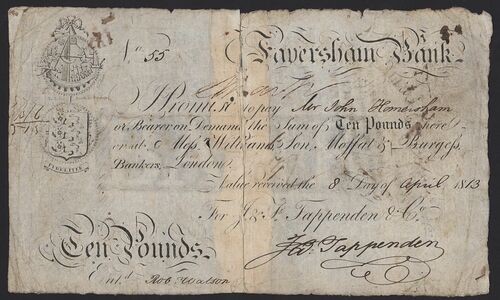 No. 55 Faversham Bank
I Promise to pay Mr John Homersham
or Bearer on Demand the Sum of Ten Pounds here
or at Messrs. Willis and Son, Moffat & Burgess,
Bankers, London.
Value received the 8 Day of April 1813
For J. & F. Tappenden & Co.
Ten Pounds. Jas. Tappenden
Entd. Rob Watson
FIDELITER